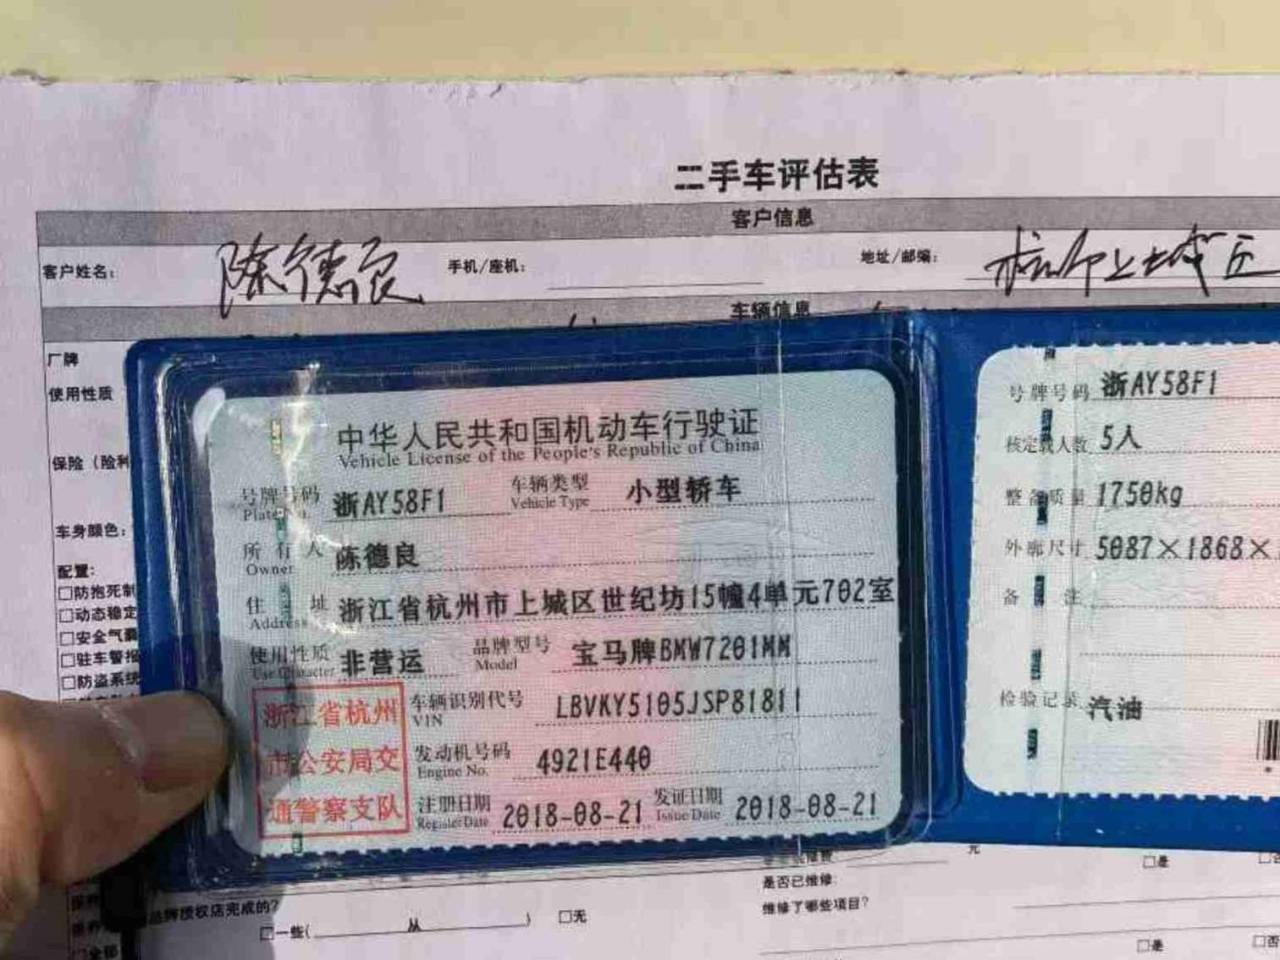 二手车评估表
客户信息
客户姓名: 陈德良 手机/座机: 地址/邮编: 杭州市上城区
车辆信息
厂牌
使用性质
保险（险种
车身颜色:
配置:
□防抱死制
□动态稳定
□安全气囊
□驻车警报
□防盗系统
中华人民共和国机动车行驶证
Vehicle License of the People's Republic of China
号牌号码 浙AY58F1 车辆类型 小型轿车
Plate No. Vehicle Type
所有人 陈德良
Owner
住址 浙江省杭州市上城区世纪坊15幢4单元702室
Address
使用性质 非营运 品牌型号 宝马牌BMW7201MM
Use Character Model
车辆识别代号 LBVKY5105JSP81811
VIN
发动机号码 4921E440
Engine No.
注册日期 2018-08-21 发证日期 2018-08-21
Register Date Issue Date
浙江省杭州
市公安局交
通警察支队
号牌号码 浙AY58F1
核定载人数 5人
整备质量 1750kg
外廓尺寸 5087×1868×
备注
检验记录 汽油
元
□是
是否已维修:
品牌授权店完成的?
维修了哪些项目?
□一些( 从 ) □无
□是 □否
□全部